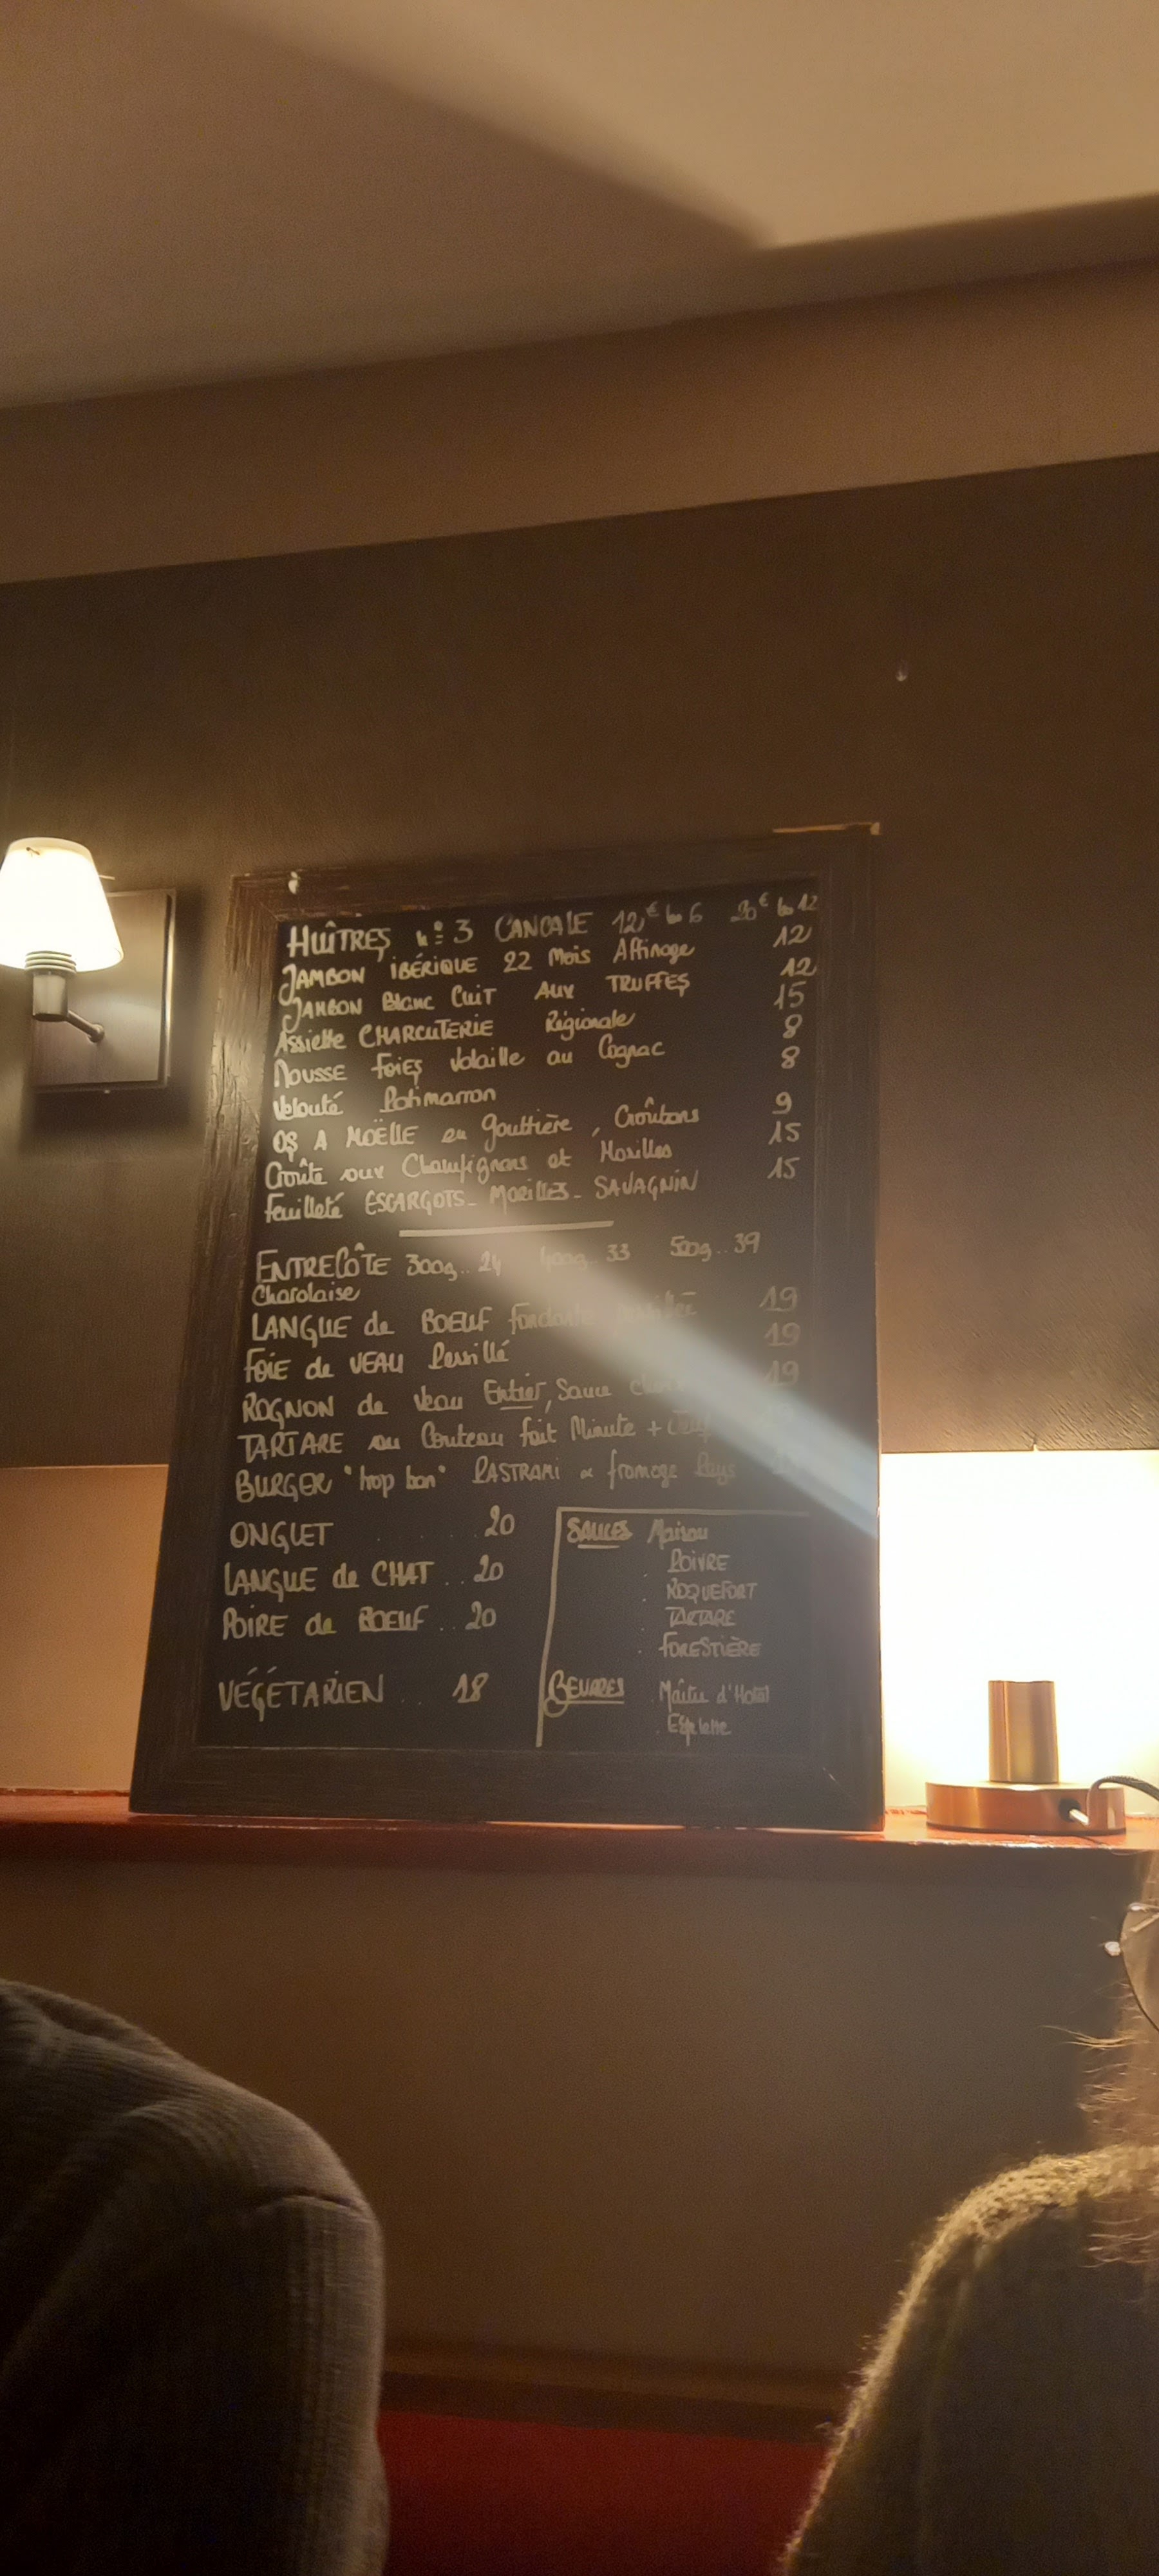 HUÎTRES n° 3 CANCALE 12,€ les 6 20€ les 12
JAMBON IBÉRIQUE 22 Mois Affinage 12
JAMBON Blanc CUIT AUX TRUFFES 12
Assiette CHARCUTERIE Régionale 15
MOUSSE FOIES Volaille au Cognac 8
Velouté Potimarron 8
OS A MOËLLE en gouttière, Croûtons 9
Croûte aux Champignons et Morilles 15
Feuilleté ESCARGOTS - MORILLES - SAVAGNIN 15
ENTRECÔTE 300g.. 24 400g.. 33 500g.. 39
Charolaise
LANGUE de BOEUF fondante 19
FOIE de VEAU Persillé 19
ROGNON de Veau Entier, Sauce 19
TARTARE au Couteau fait Minute +
BURGER "hop ban" PASTRAMI & fromage Pays
ONGLET 20
LANGUE de CHAT .. 20
POIRE de BOEUF .. 20
VÉGÉTARIEN .. 18
SAUCES Maison
POIVRE
. ROQUEFORT
. TARTARE
. FORESTIÈRE
BEURRES . Maître d'Hotel
. Espelette